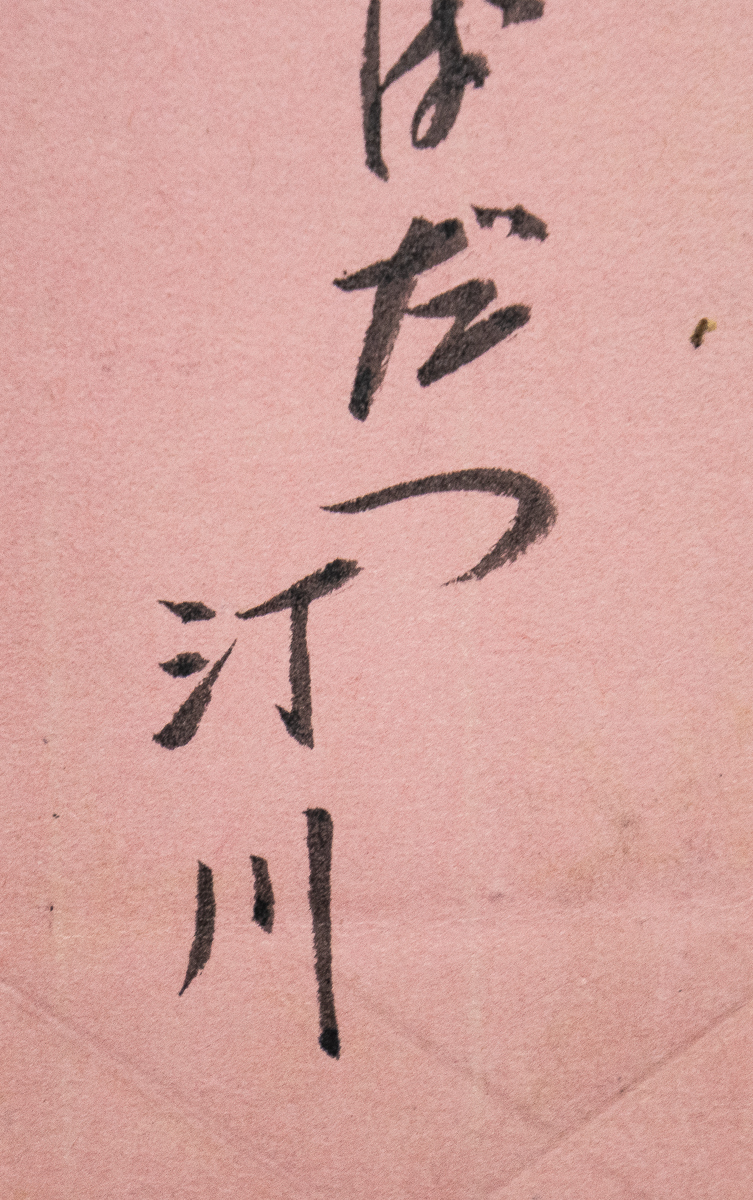 ばだつ
汀川